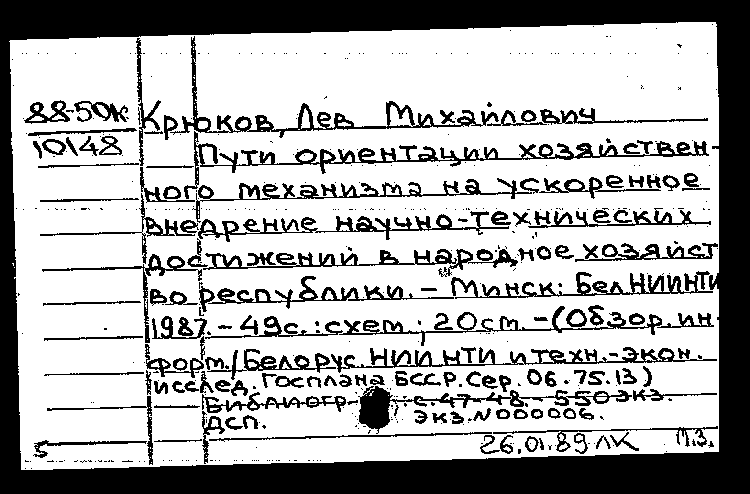 88-50к
10148
Крюков, Лев Михайлович
Пути ориентации хозяйствен-
ного механизма на ускоренное
внедрение научно-технических
достижений в народное хозяйст
во республики. - Минск: БелНИИНТИ
1987. - 49с.: схем.; 20см. - (Обзор. ин-
форм./Белорус. НИИНТИ и техн.-экон.
исслед. Госплана БССР. Сер. 06.75.13)
Библиогр. с.47-48. - 550экз.
ДСП. экз.N000006.
5 26.01.89 ЛК М.З.